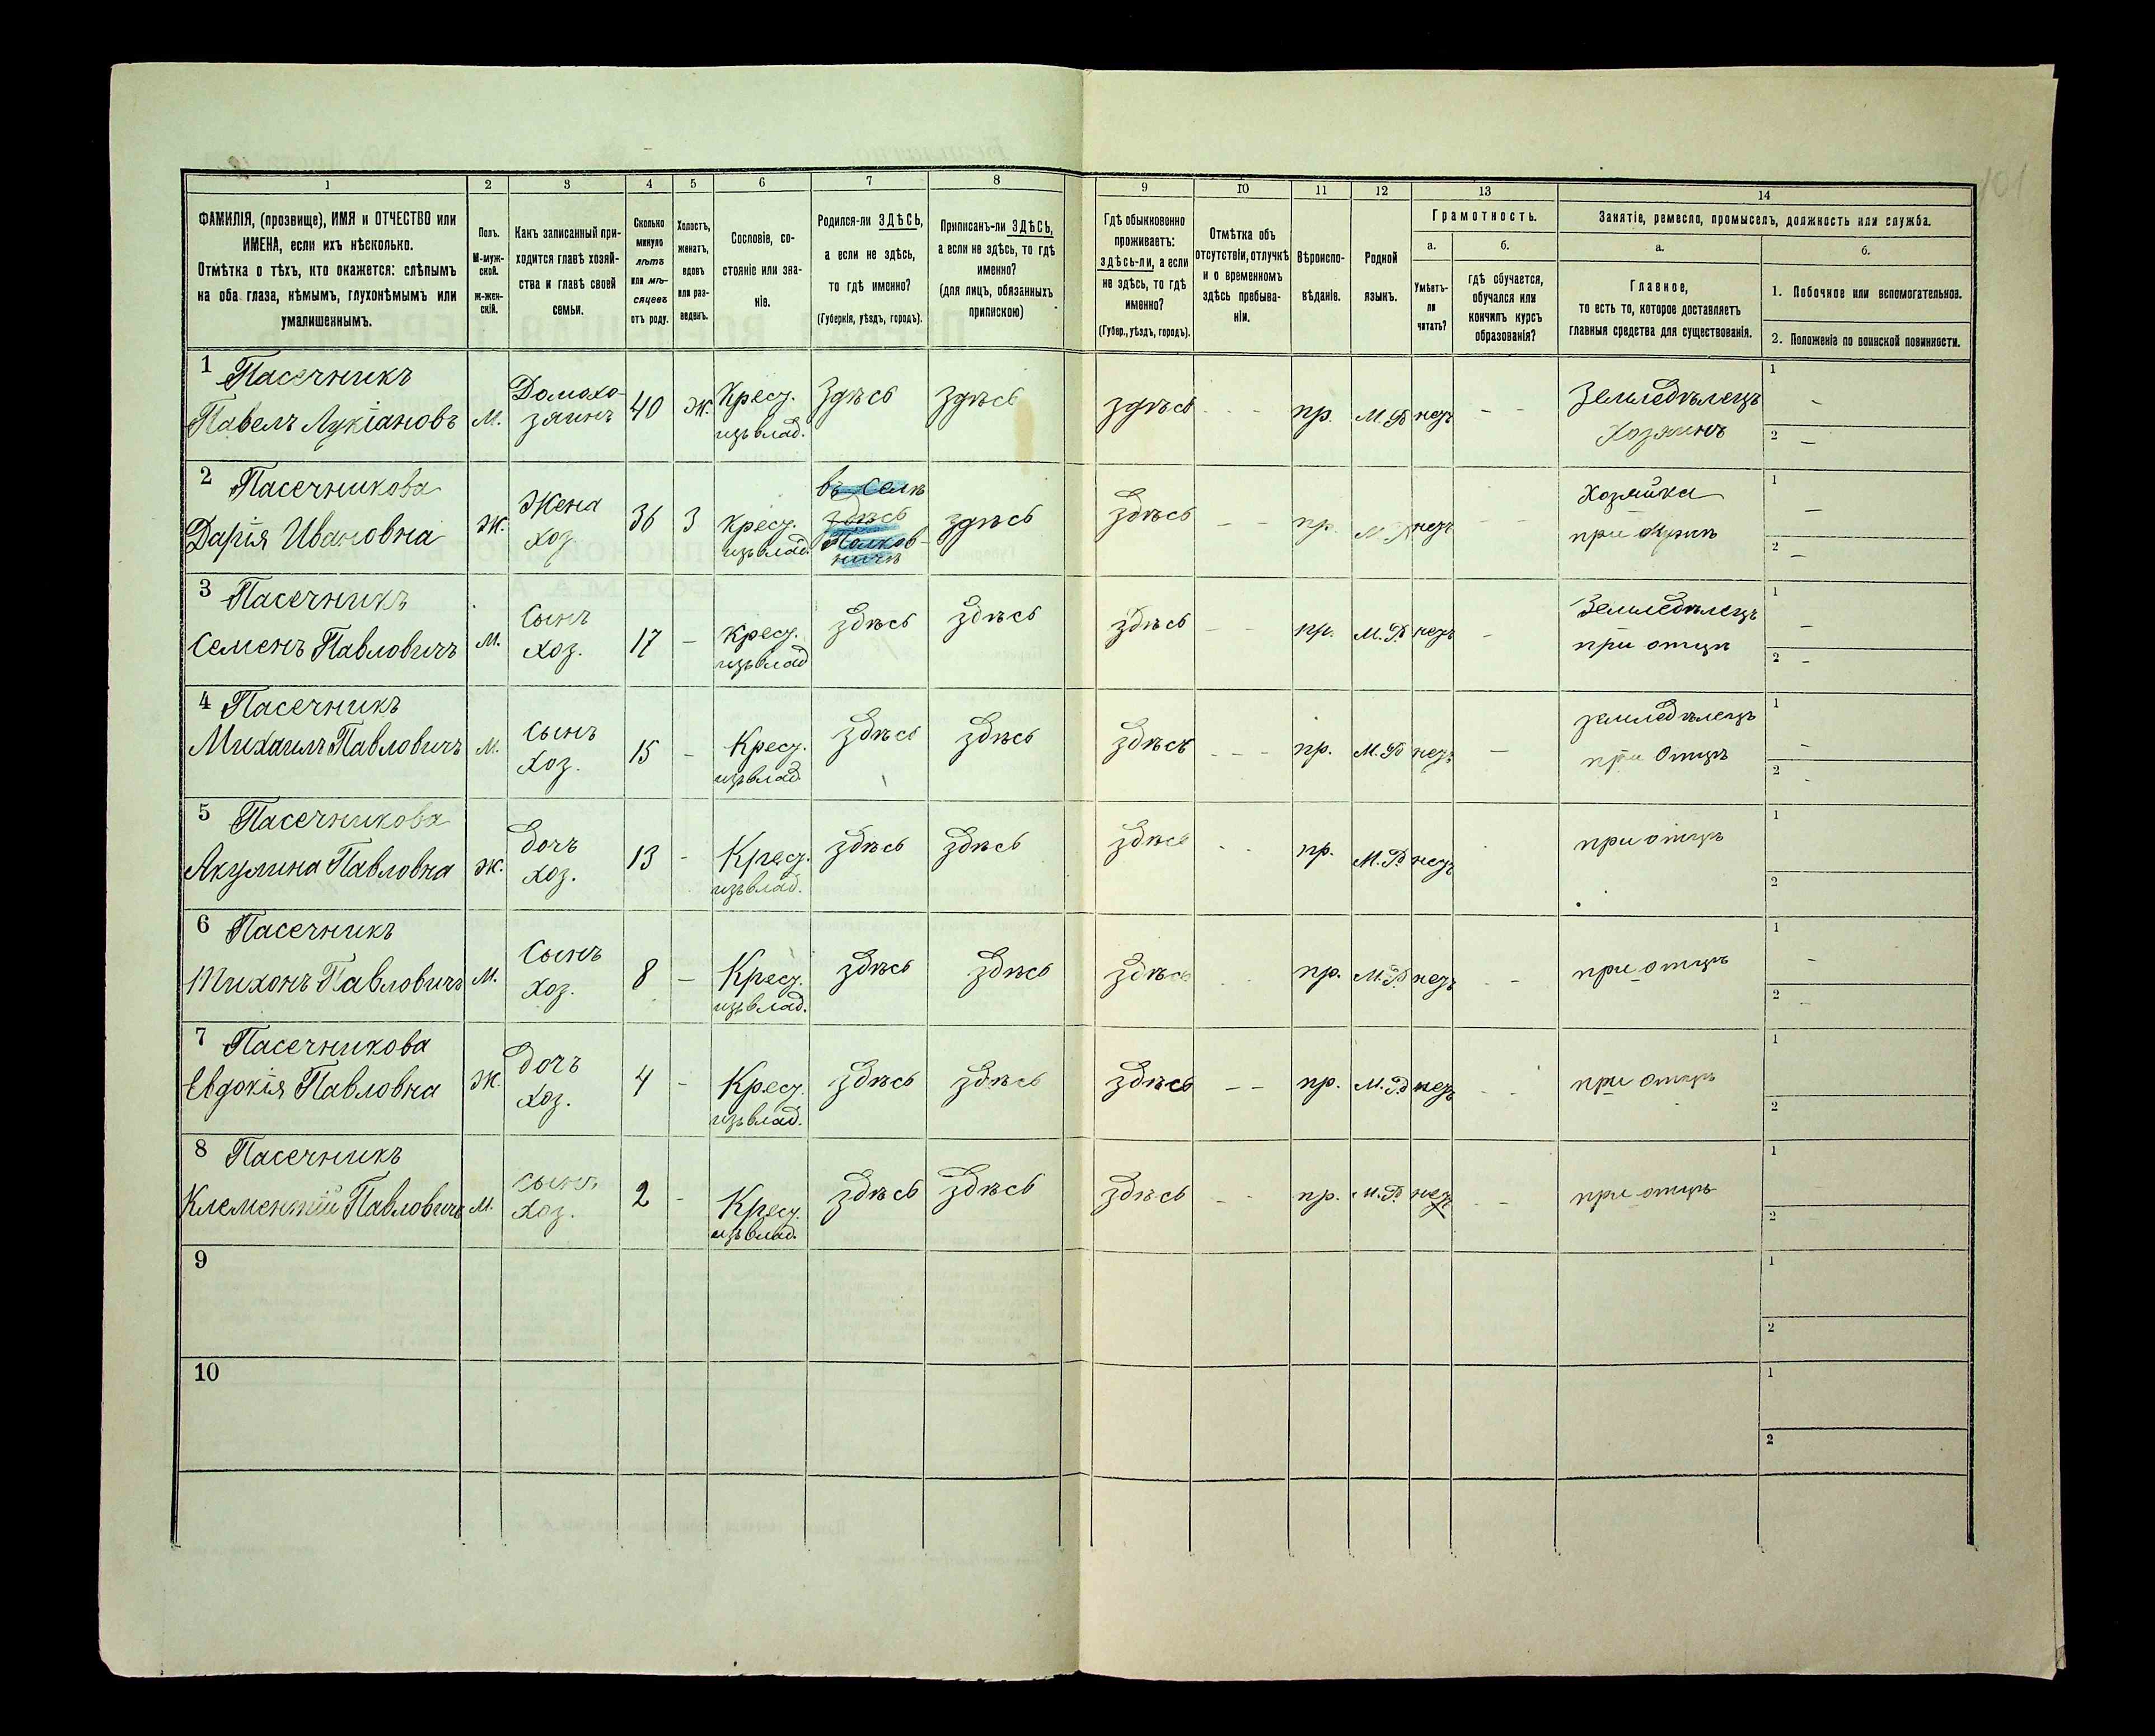 101
1 2 3 4 5 6 7 8 9 10 11 12 13 14
ФАМИЛІЯ, (прозвище), ИМЯ и ОТЧЕСТВО или
ИМЕНА, если ихъ нѣсколько.
Отмѣтка о тѣхъ, кто окажется: слѣпымъ
на оба глаза, нѣмымъ, глухонѣмымъ или
умалишеннымъ.
Полъ.
М-муж-
ской.
Ж-жен-
скій.
Какъ записанный при-
ходится главѣ хозяй-
ства и главѣ своей
семьи.
Сколько
минуло
лѣтъ
или мѣ-
сяцевъ
отъ роду.
Холостъ,
женатъ,
вдовъ
или раз-
веденъ.
Сословіе, со-
стояніе или зва-
ніе.
Родился-ли ЗДѢСЬ,
а если не здѣсь,
то гдѣ именно?
(Губернія, уѣздъ, городъ).
Приписанъ-ли ЗДѢСЬ,
а если не здѣсь, то гдѣ
именно?
(для лицъ, обязанныхъ
припискою)
Гдѣ обыкновенно
проживаетъ:
здѣсь-ли, а если
не здѣсь, то гдѣ
именно?
(Губер., уѣздъ, городъ).
Отмѣтка объ
отсутствіи, отлучкѣ
и о временномъ
здѣсь пребыва-
ніи.
Вѣроиспо-
вѣданіе.
Родной
языкъ.
Грамотность.
а. б.
Умѣетъ-
ли
читать?
гдѣ обучается,
обучался или
кончилъ курсъ
образованія?
Занятіе, ремесло, промыселъ, должность или служба.
а. б.
Главное,
то есть то, которое доставляетъ
главныя средства для существованія.
1. Побочное или вспомогательное.
2. Положеніе по воинской повинности.
1 Пасечникъ Домохо- Крест. Здѣсь здѣсь Земледѣлецъ 1 –
Павелъ Лукіановъ М. зяинъ 40 Ж. изъ влад. здѣсь - - - пр. М.Р. нетъ - - Хозяинъ 2 –
2 Пасечникова Жена въ селѣ здѣсь Хозяйка 1 –
Дарія Ивановна Ж. хоз 36 З крест. здѣсь здѣсь - - пр. М.Р. нетъ - - при мужѣ
изъ влад. Полков-
ничѣ 2 –
3 Пасечникъ Сынъ здѣсь здѣсь здѣсь Земледѣлецъ 1 –
Семенъ Павловичъ М. хоз. 17 – крест. - - пр. М.Р. нетъ - при отцѣ
изъ влад 2 –
4 Пасечникъ сынъ здѣсь здѣсь земледѣлецъ 1 –
Михаилъ Павловичъ М. хоз. 15 – Крест. здѣсь - - - пр. М.Р. нетъ – при Отцѣ
изъ влад. 2 -
5 Пасечникова дочъ здѣсь здѣсь здѣсь при отцѣ 1
Акулина Павловна Ж. хоз. 13 - Крест. - - пр. М.Р. нетъ
изъ влад. 2
6 Пасечникъ Сынъ здѣсь здѣсь здѣсь при отцѣ 1 –
Тихонъ Павловичъ М. хоз. 8 – Крест. - - пр. М.Р. нетъ - -
изъ влад. 2 –
7 Пасечникова дочъ здѣсь здѣсь здѣсь 1
Евдокія Павловна Ж. хоз. 4 - Крест. – – пр. М.Р. нетъ - - при отцѣ
изъ влад. 2
8 Пасечникъ сынъ здѣсь здѣсь здѣсь при отцѣ 1
Клементій Павловичъ М. хоз. 2 - Крест. - - пр. М.Р. нетъ - -
изъ влад. 2
9 1
2
10 1
2